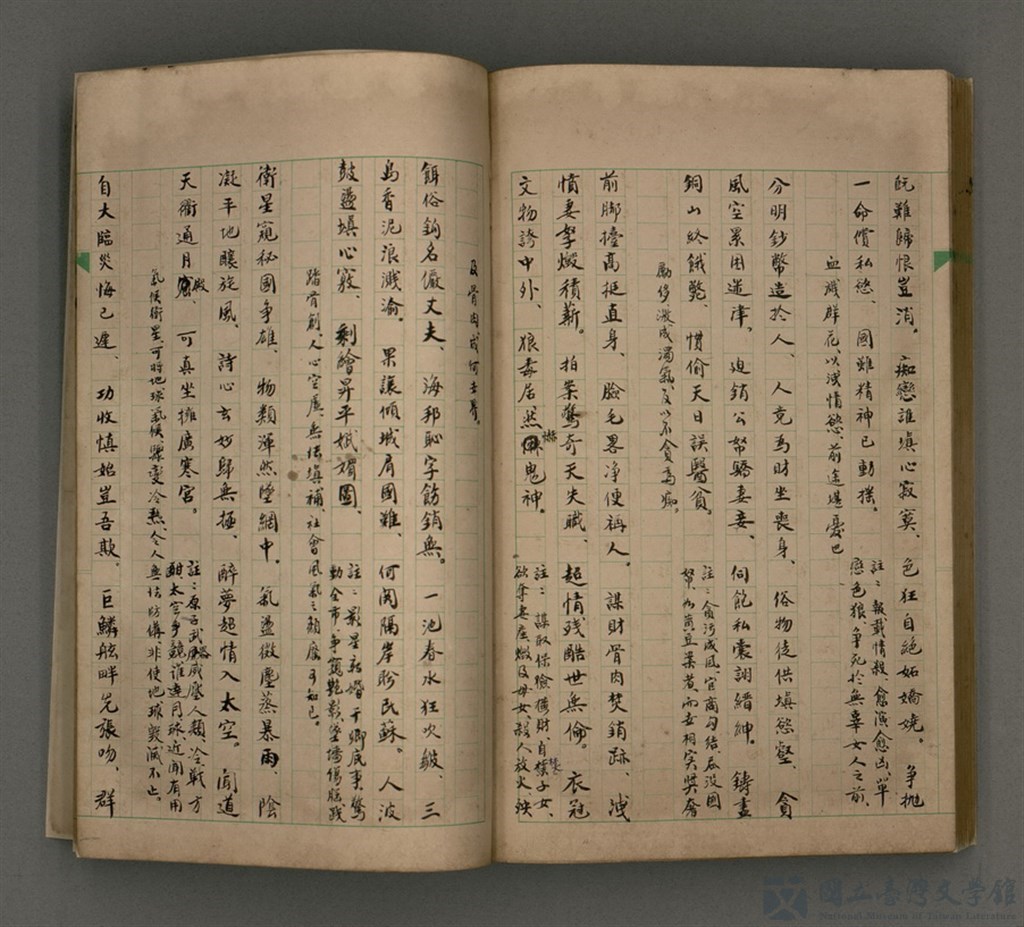 阮難歸恨豈消。痴戀誰填心寂寞、色狂自絕妬嬌嬈。爭拋
一命償私慾、國難精神已動搖。註：報載情殺、愈演愈凶、單戀色狼、爭死於無辜女人之前、
血濺群花、以洩情慾、前途堪憂也
分明鈔幣造於人、人竟為財坐喪身、俗物徒供填慾壑、貪
風空累困迷津、迫銷公帑驕妻妾、伺飽私囊詡縉紳。鑄盡
銅山終餓斃、慣偷天日誤醫貧。註：貪污成風、官商勾結、吞沒國帑、
勵侈激成濁氣、反以不貪為痴。
前脚擡高挺直身、臉毛畧净便稱人。謀財骨肉焚銷跡、洩
憤妻孥煅積薪。拍案驚奇天失職、超情殘酷世無倫。衣冠
文物誇中外、狼毒居然鬼神。註：謀取保險獲財、自子女、欲奪妻產、燬及母女、殺人放火、殃
及骨肉成何去尋。
餌俗鈎名儼丈夫、海邦恥字飭銷無。一池春水狂吹皺、三
島香泥浪濺渝。果讓傾城肩國難、何閱隔岸盼民蘇。人波
鼓盪填心竅、剩繪昇平娬獮圖、註：影星新婚、干卿底事、驚動全市、爭窺艷影、墜墻傷腿、跋
踏骨創、人心空虛、無法填補、社會風氣之頹廢可知已。
衛星窺秘國爭雄、物類渾然墮網中。氣盪微塵蒸暴雨、陰
凝平地釀旋風、詩心玄妙歸無極、醉夢超情入太空。聞道
天衢通月殿、可真坐擁廣寒宮。註：原子武威壓人類、冷戰方酣、太空爭競誰達月球、近聞有用
氣候衛星、可將地球氣候驟變冷熱、令人無法防備、非使地球毀滅不止。
自大臨災悔已遲、功收慎始豈吾欺、巨鱗舷畔先張吻、群